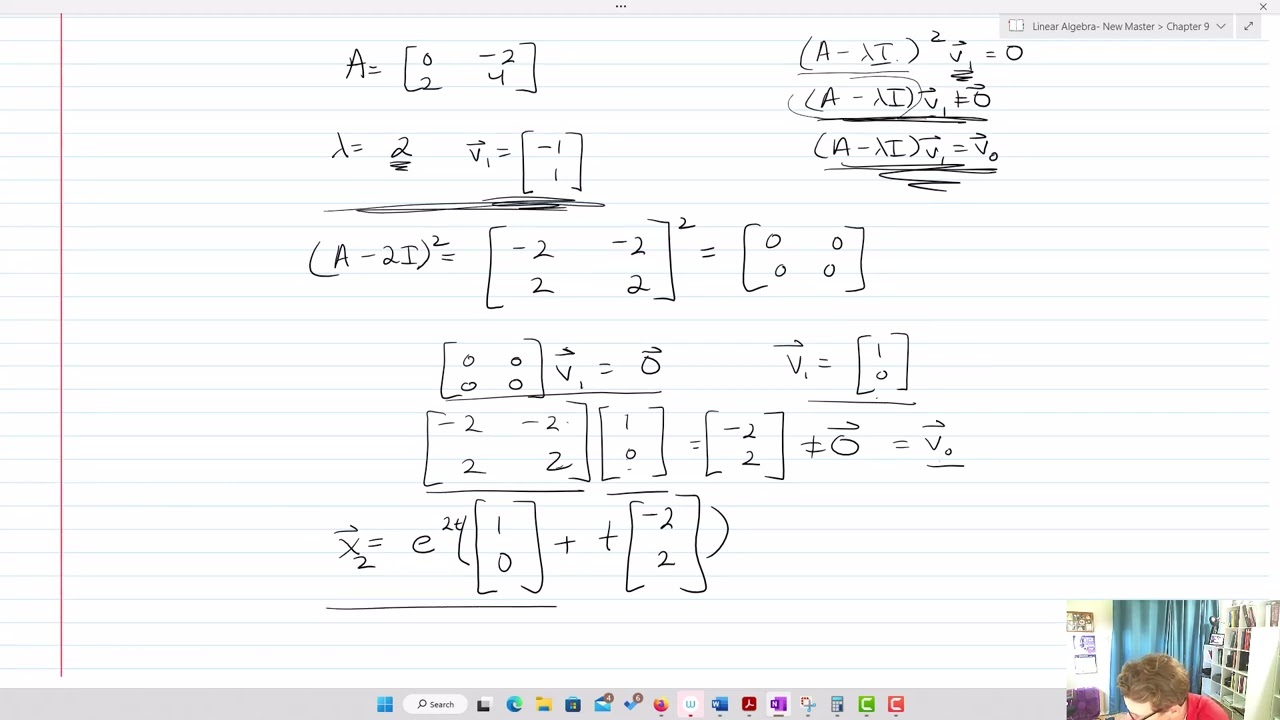 Linear Algebra- New Master > Chapter 9
A = [0 -2; 2 4]
(A - λI)² v⃗₁ = 0
(A - λI) v⃗₁ ≠ 0⃗
λ = 2 v⃗₁ = [-1; 1]
(A - λI) v⃗₁ = v⃗₀
(A - 2I)² = [-2 -2; 2 2]² = [0 0; 0 0]
[0 0; 0 0] v⃗₁ = 0⃗ v⃗₁ = [1; 0]
[-2 -2; 2 2] [1; 0] = [-2; 2] ≠ 0⃗ = v⃗₀
x⃗₂ = e^2t ([1; 0] + t [-2; 2])
Search
4
6